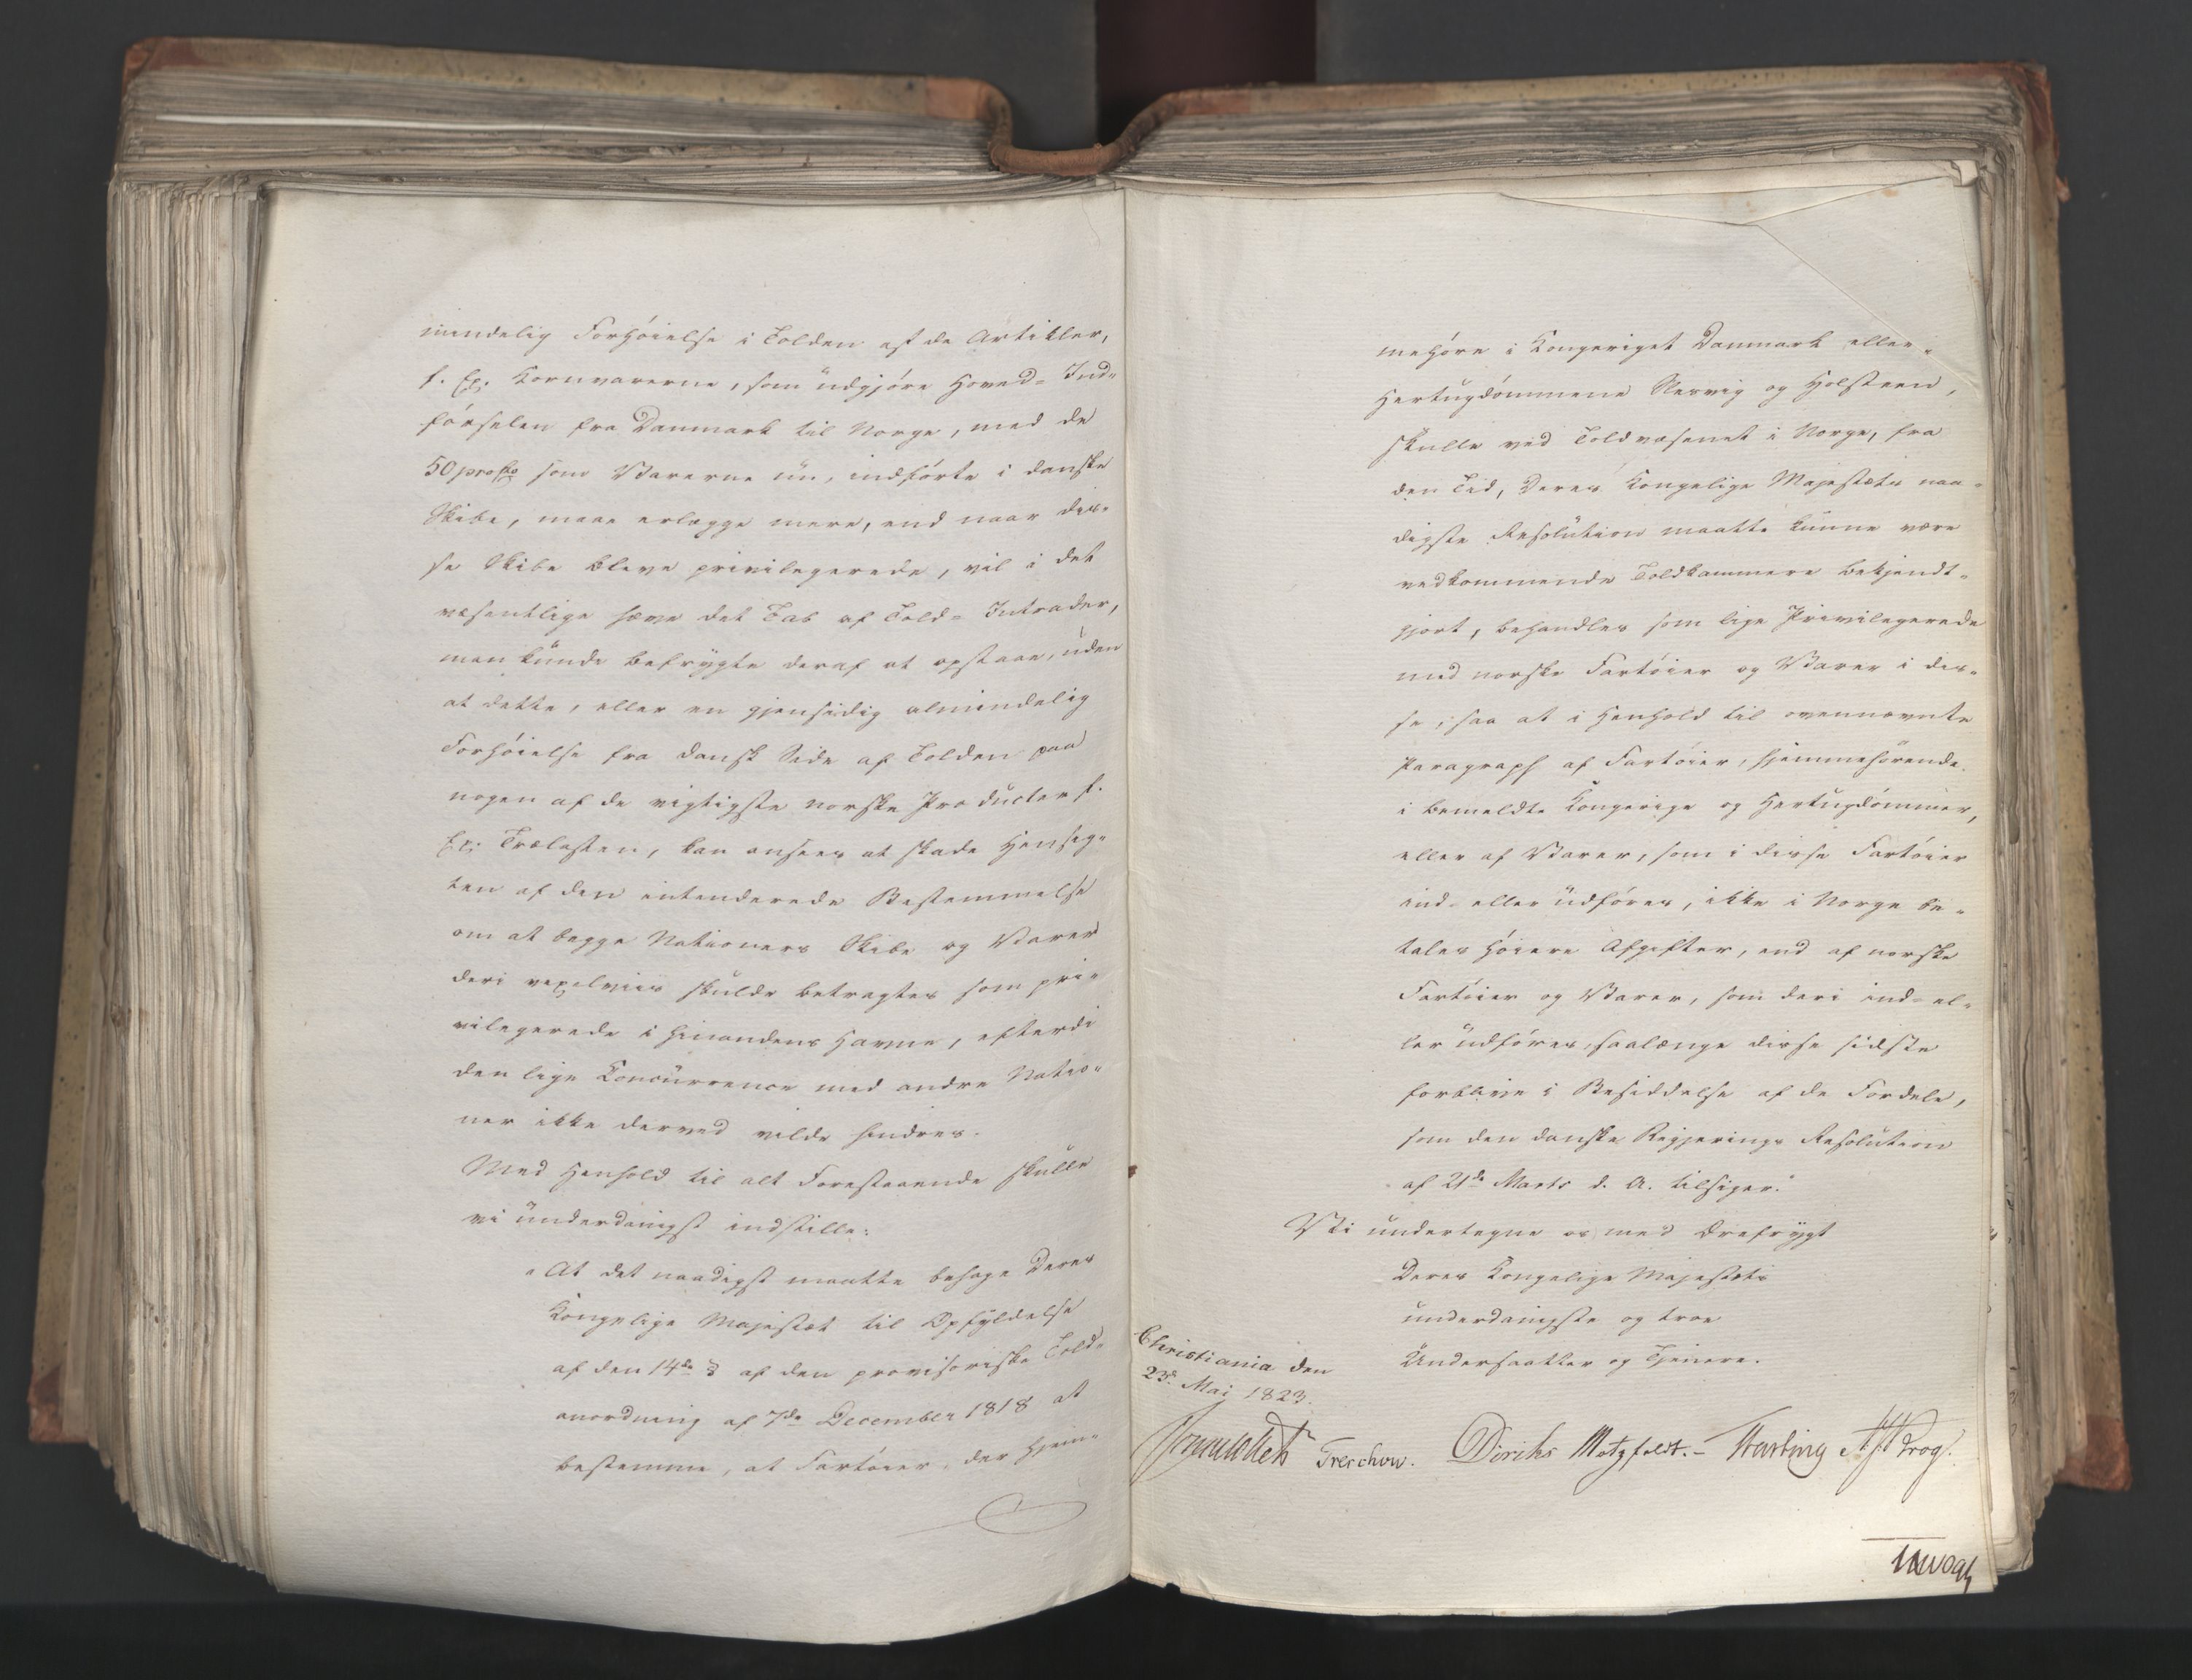 mindelig Forhøielse i Tolden af de Artikler,
f. Ex. Kornvarerne, som udgjøre Hoved- Ind-
førselen fra Danmark til Norge, med de
50 pro Cto som Varerne nu, indførte i danske
Skibe, maae erlægge mere, end naar dis-
se Skibe bleve privilegerede, vil i det
væsentlige hæve det Tab af Told- Intrader,
man kunde befrygte deraf at opstaae, uden
at dette, eller en gjensidig almindelig
Forhøielse fra dansk Side af Tolden paa
nogen af de vigtigste norske Producter f.
Ex. Trælasten, kan ansees at skade Hensig-
ten af den intenderede Bestemmelse
om at begge Nationers Skibe og Varer
deri vexelviis skulde betragtes som pri-
vilegerede i hinandens Havne, efterdi
den lige Concurrence med andre Natio-
ner ikke derved vilde hindres.
Med Henhold til alt Forestaaende skulle
vi underdanigst indstille:
"At det naadigst maatte behage Deres
Kongelige Majestæt til Opfyldelse
af den 14de § af den provisoriske Told-
anordning af 7de December 1818 at
bestemme, at Fartøier, der hjem-
mehøre i Kongeriget Danmark eller
Hertugdømmene Slesvig og Holsteen,
skulle ved Toldvæsenet i Norge, fra
den Tid, Deres Kongelige Majestæts naa-
digste Resolution maatte kunne være
vedkommende Toldkammere bekjendt-
gjort, behandles som lige Privilegerede
med norske Fartøier og Varer i dis-
se, saa at i Henhold til ovennævnte
Paragraph af Fartøier, hjemmehørende
i bemeldte Kongerige og Hertugdømmer,
eller af Varer, som i disse Fartøier
ind- eller udføres, ikke i Norge be-
tales høiere Afgifter, end af norske
Fartøier og Varer, som deri ind- el-
ler udføres, saalænge disse sidste
forblive i Besiddelse af de Fordele,
som den danske Regjerings Resolution
af 21de Marts d. A. tilsiger."
Vi undertegne os med Ærefrygt
Deres Kongelige Majestæts
underdanigste og troe
Undersaatter og Tjenere.
Christiania den
23de Mai 1823.
Treschow. Diriks Motzfeldt. Krog.